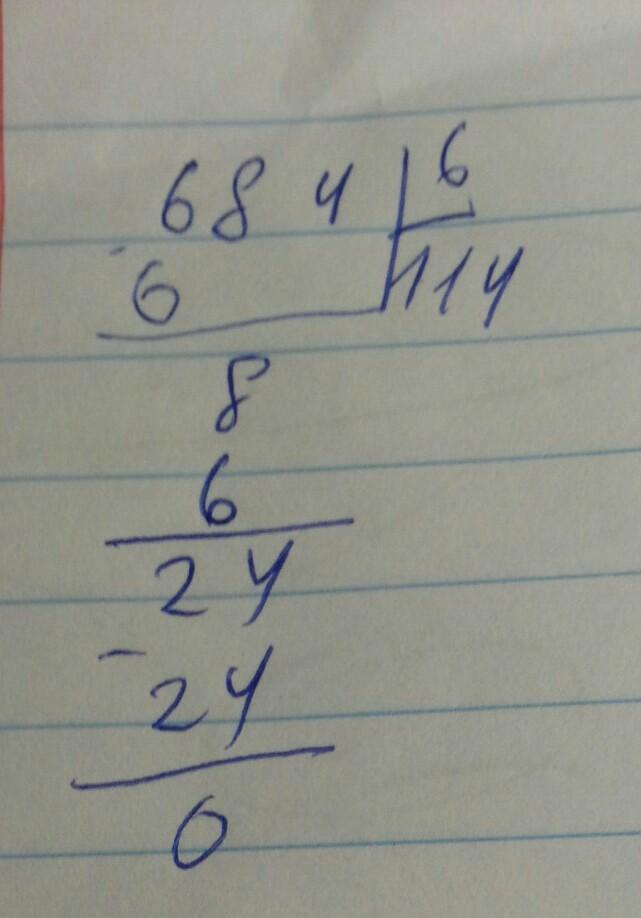 684 6
- 6 114
8
6
24
-
24
0